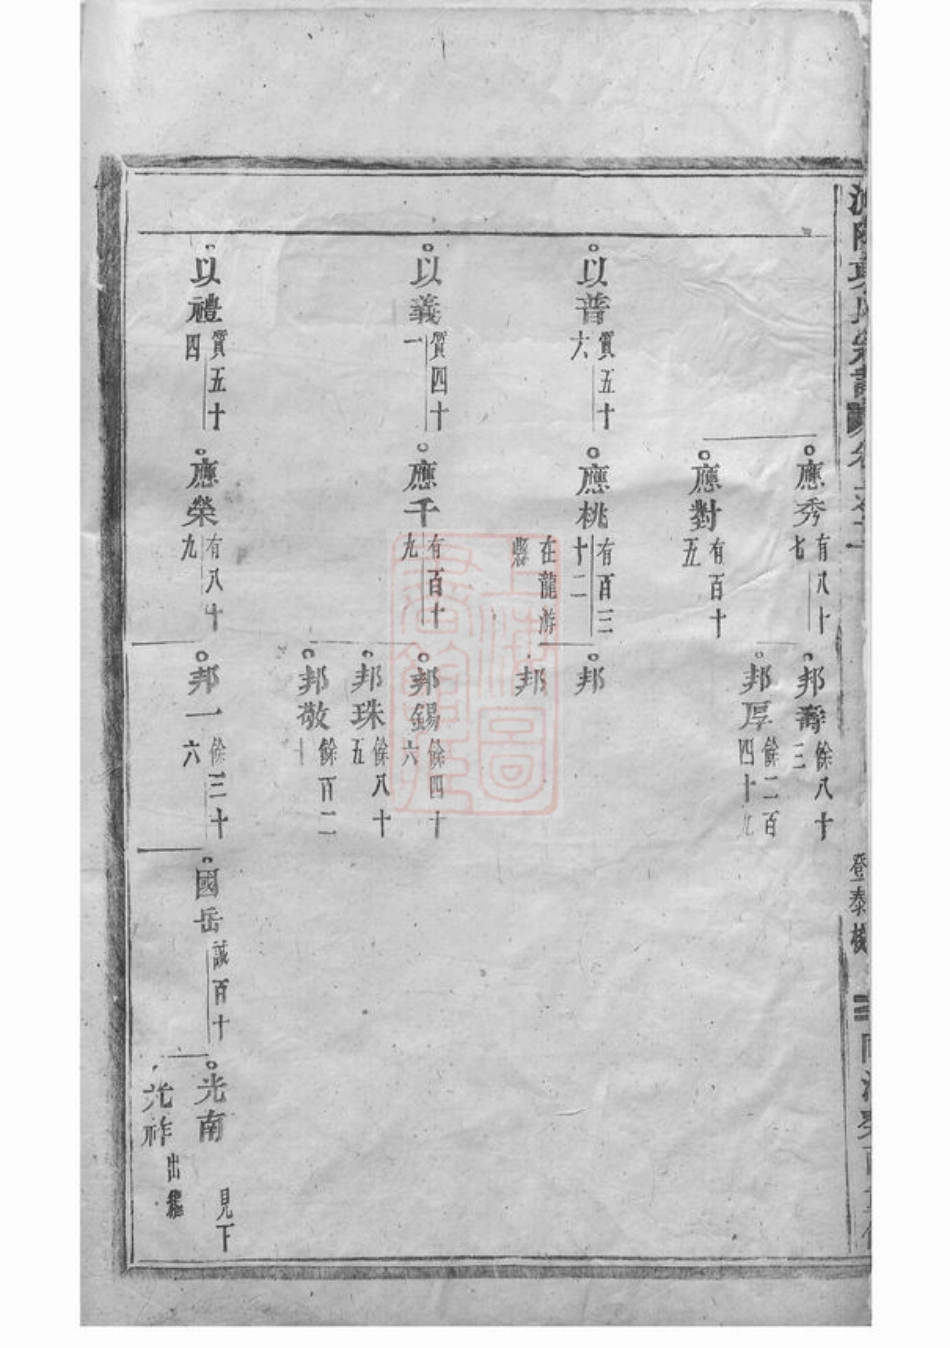 應秀 有八十七
邦壽 餘八十三
邦厚 餘二百四十九
應對 有百十五
以普 質五十六
應桃 有百三十二
在龍游縣
邦
邦
以義 質四十一
應千 有百十九
邦錫 餘四十六
邦珠 餘八十五
邦敬 餘百二十
以禮 質五十四
應榮 有八十九
邦一 餘三十六
國岳 誠百十
光南 見下
光祚 出繼
登泰
上海圖書館藏